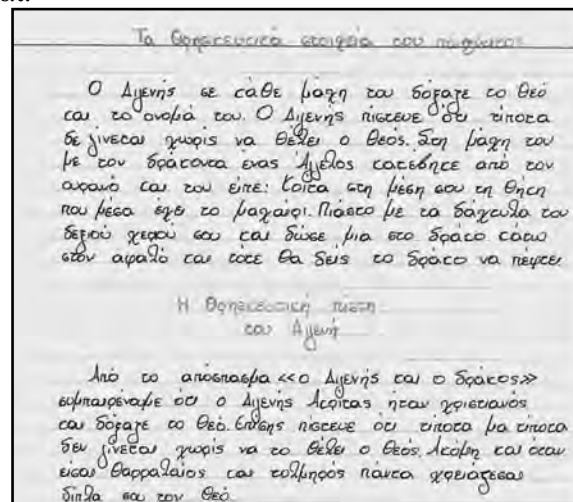 Τα Θρησκευτικά στοιχεία του ποιήματος
Ο Διγενής σε κάθε μάχη του δόξαζε το Θεό
και το όνομά του. Ο Διγενής πίστευε ότι τίποτα
δε γίνεται χωρίς να θέλει ο Θεός. Στη μάχη του
με τον δράκοντα ένας Άγγελος κατέβηκε από τον
ουρανό και του είπε: Κοίτα στη μέση σου τη θήκη
που μέσα έχει το μαχαίρι. Πιάστο με τα δάχτυλα του
δεξιού χεριού σου και δώσε μια στο δράκο κάτω
στον αφαλό και τότε θα δεις το δράκο να πέφτει
Η Θρησκευτική πίστη
του Διγενή
Από το απόσπασμα <<ο Διγενής και ο δράκος>>
συμπαιρέναμε ότι ο Διγενής Ακρίτας ήταν χριστιανός
και δόξαζε το Θεό. Επίσης πίστευε ότι τίποτα μα τίποτα
δεν γίνεται χωρίς να το θέλει ο Θεός. Ακόμη και όταν
είσαι θαρραλαίος και τολμηρός πάντα χρειάζεσαι
δίπλα σου τον Θεό.